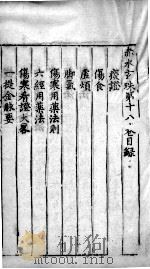 赤水玄珠第十八卷目錄
痰證
傷食
虛煩
脚氣
傷寒用藥法則
六經用藥法
傷寒看證大畧
一提金啟要